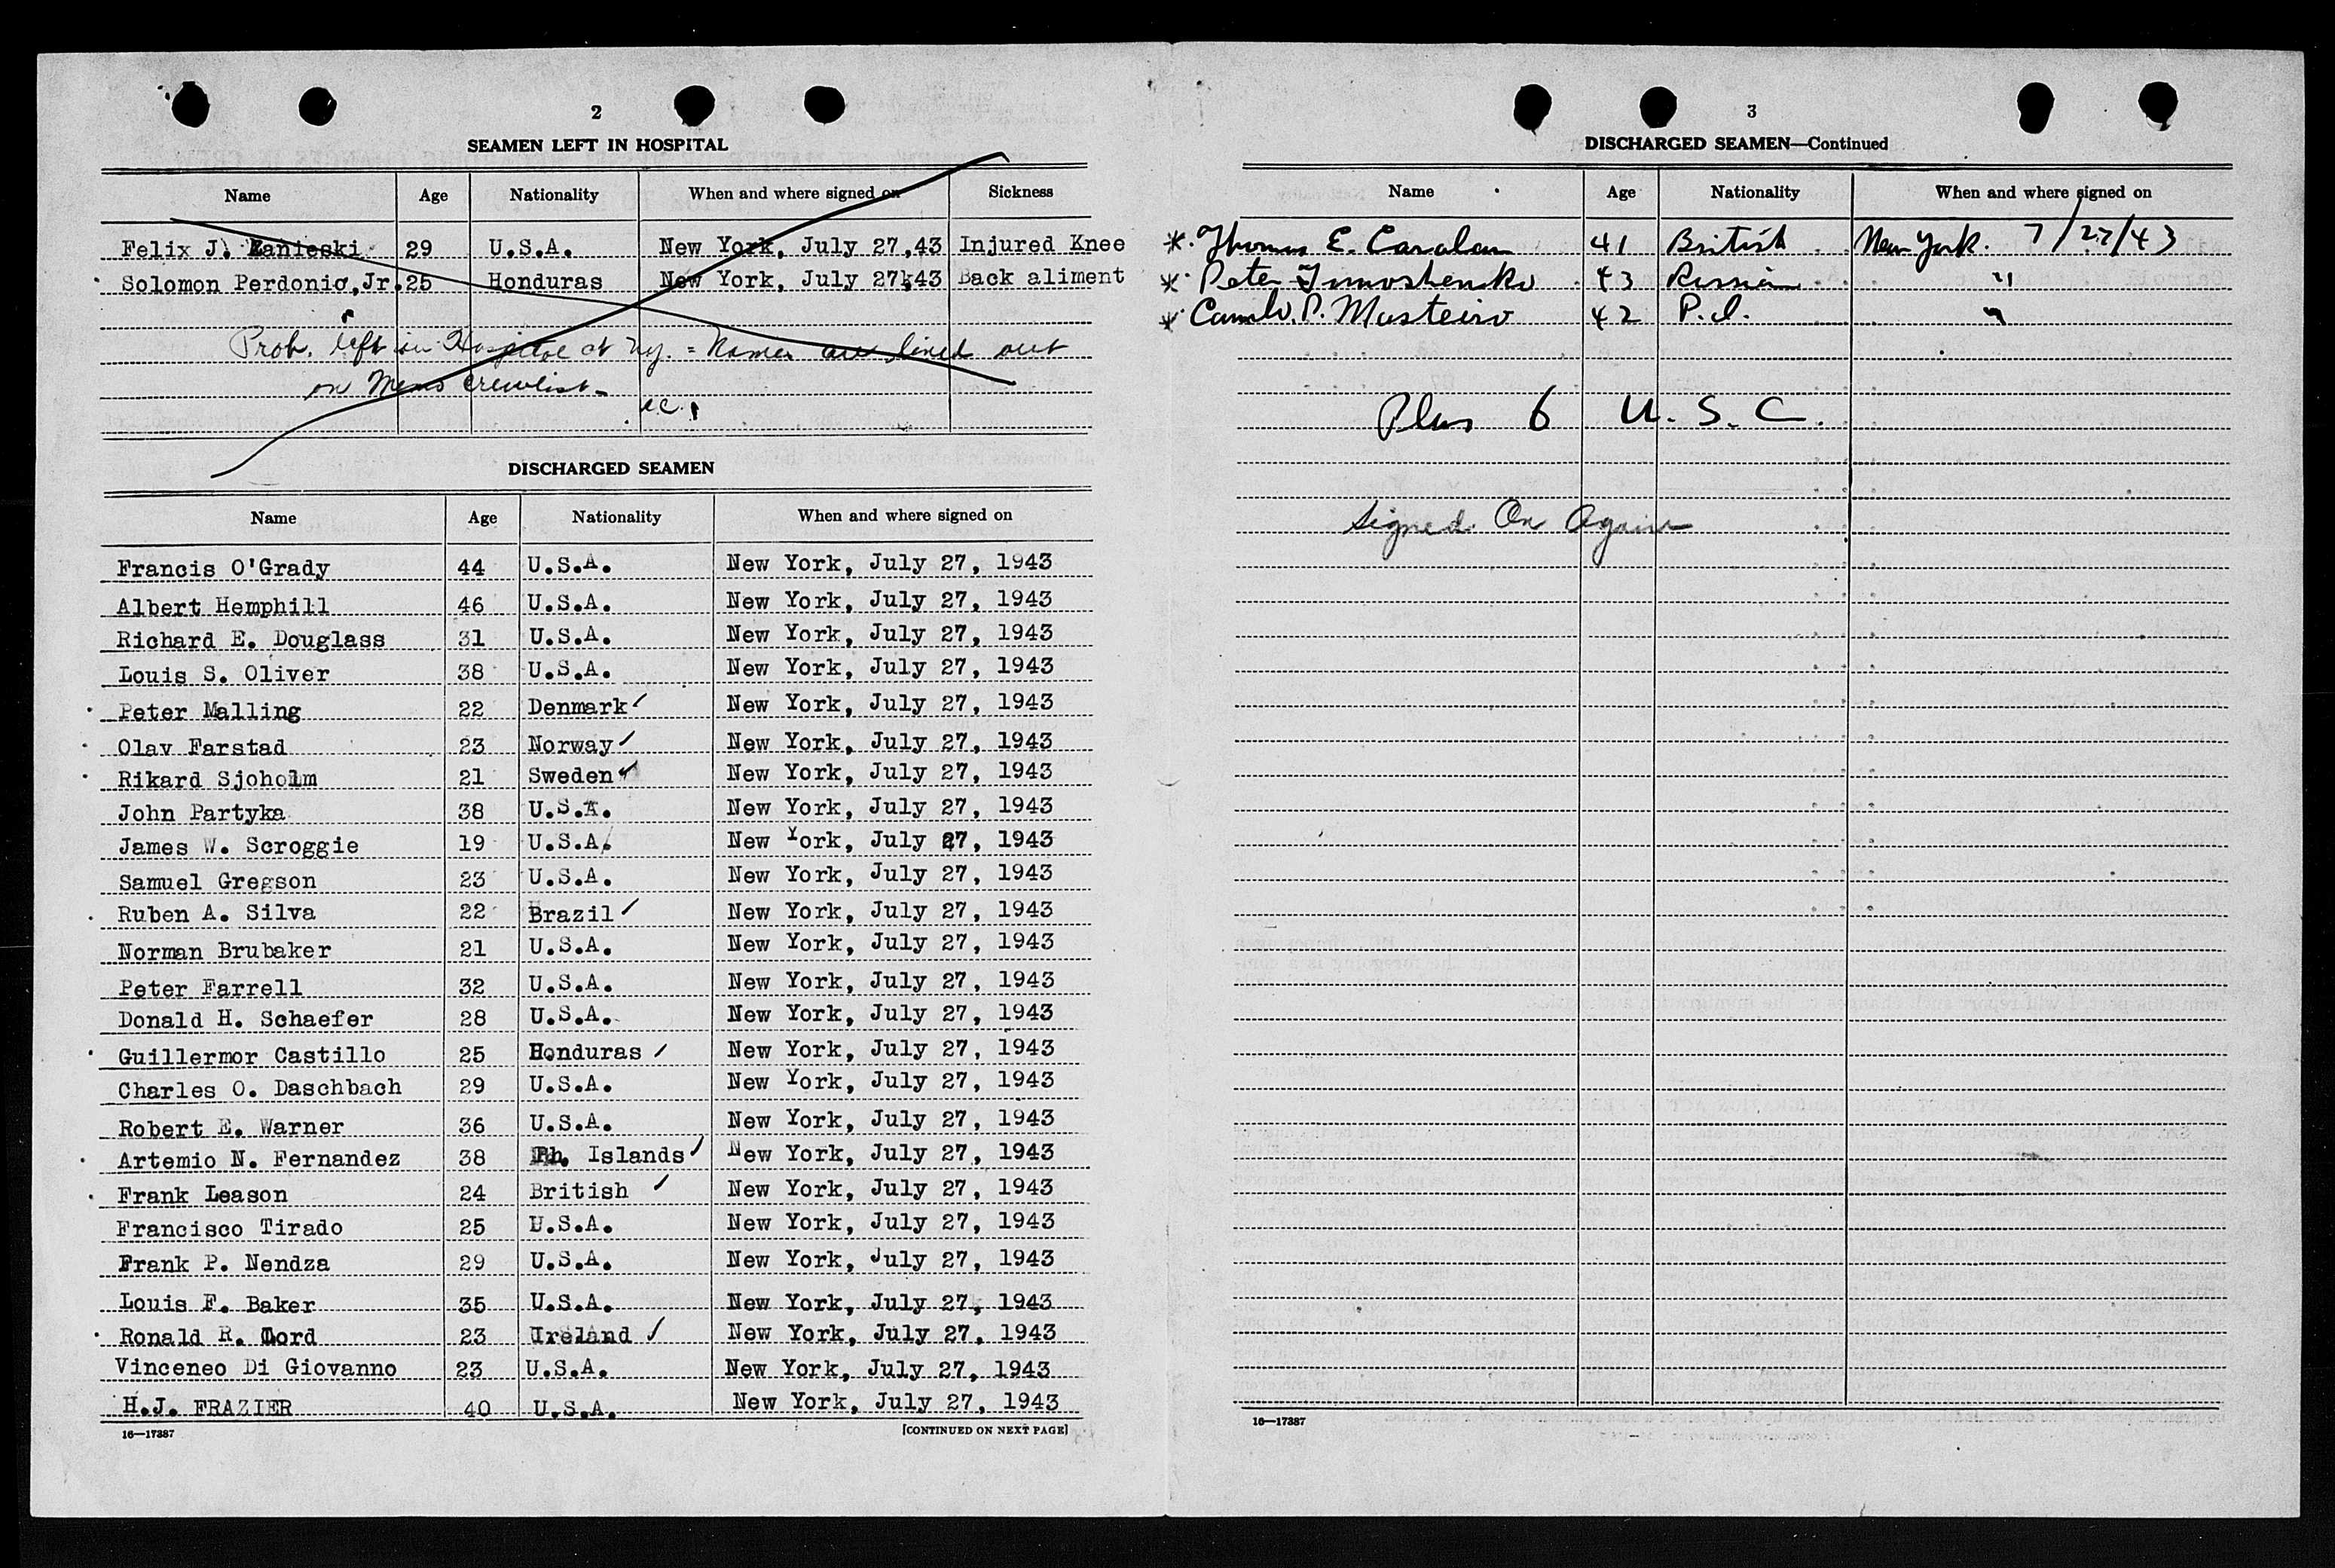 2
SEAMEN LEFT IN HOSPITAL
Name Age Nationality When and where signed on Sickness
Felix J. Zanieski 29 U.S.A. New York, July 27,43 Injured Knee
Solomon Perdonio,Jr. 25 Honduras New York, July 27,43 Back aliment
Prob. left in Hospital at Ny. = Names are lined out
on crewlist
DISCHARGED SEAMEN
Name Age Nationality When and where signed on
Francis O'Grady 44 U.S.A. New York, July 27, 1943
Albert Hemphill 46 U.S.A. New York, July 27, 1943
Richard E. Douglass 31 U.S.A. New York, July 27, 1943
Louis S. Oliver 38 U.S.A. New York, July 27, 1943
Peter Malling 22 Denmark ✓ New York, July 27, 1943
Olav Farstad 23 Norway ✓ New York, July 27, 1943
Rikard Sjoholm 21 Sweden ✓ New York, July 27, 1943
John Partyka 38 U.S.A. New York, July 27, 1943
James W. Scroggie 19 U.S.A. New York, July 27, 1943
Samuel Gregson 23 U.S.A. New York, July 27, 1943
Ruben A. Silva 22 Brazil ✓ New York, July 27, 1943
Norman Brubaker 21 U.S.A. New York, July 27, 1943
Peter Farrell 32 U.S.A. New York, July 27, 1943
Donald H. Schaefer 28 U.S.A. New York, July 27, 1943
Guillermor Castillo 25 Honduras ✓ New York, July 27, 1943
Charles O. Daschbach 29 U.S.A. New York, July 27, 1943
Robert E. Warner 36 U.S.A. New York, July 27, 1943
Artemio N. Fernandez 38 Ph. Islands ✓ New York, July 27, 1943
Frank Leason 24 British ✓ New York, July 27, 1943
Francisco Tirado 25 U.S.A. New York, July 27, 1943
Frank P. Nendza 29 U.S.A. New York, July 27, 1943
Louis F. Baker 35 U.S.A. New York, July 27, 1943
Ronald R. Lord 23 Ireland ✓ New York, July 27, 1943
Vinceneo Di Giovanno 23 U.S.A. New York, July 27, 1943
H.J. FRAZIER 40 U.S.A. New York, July 27, 1943
16—17387 [CONTINUED ON NEXT PAGE]
3
DISCHARGED SEAMEN—Continued
Name Age Nationality When and where signed on
* Thomas E. 41 British New York. 7/27/43
* Peter Timoshenko 43 Russian "
* Camilo. P. Musteiro 42 P.I. "
Plus 6 U.S.C.
Signed On Again
16—17387